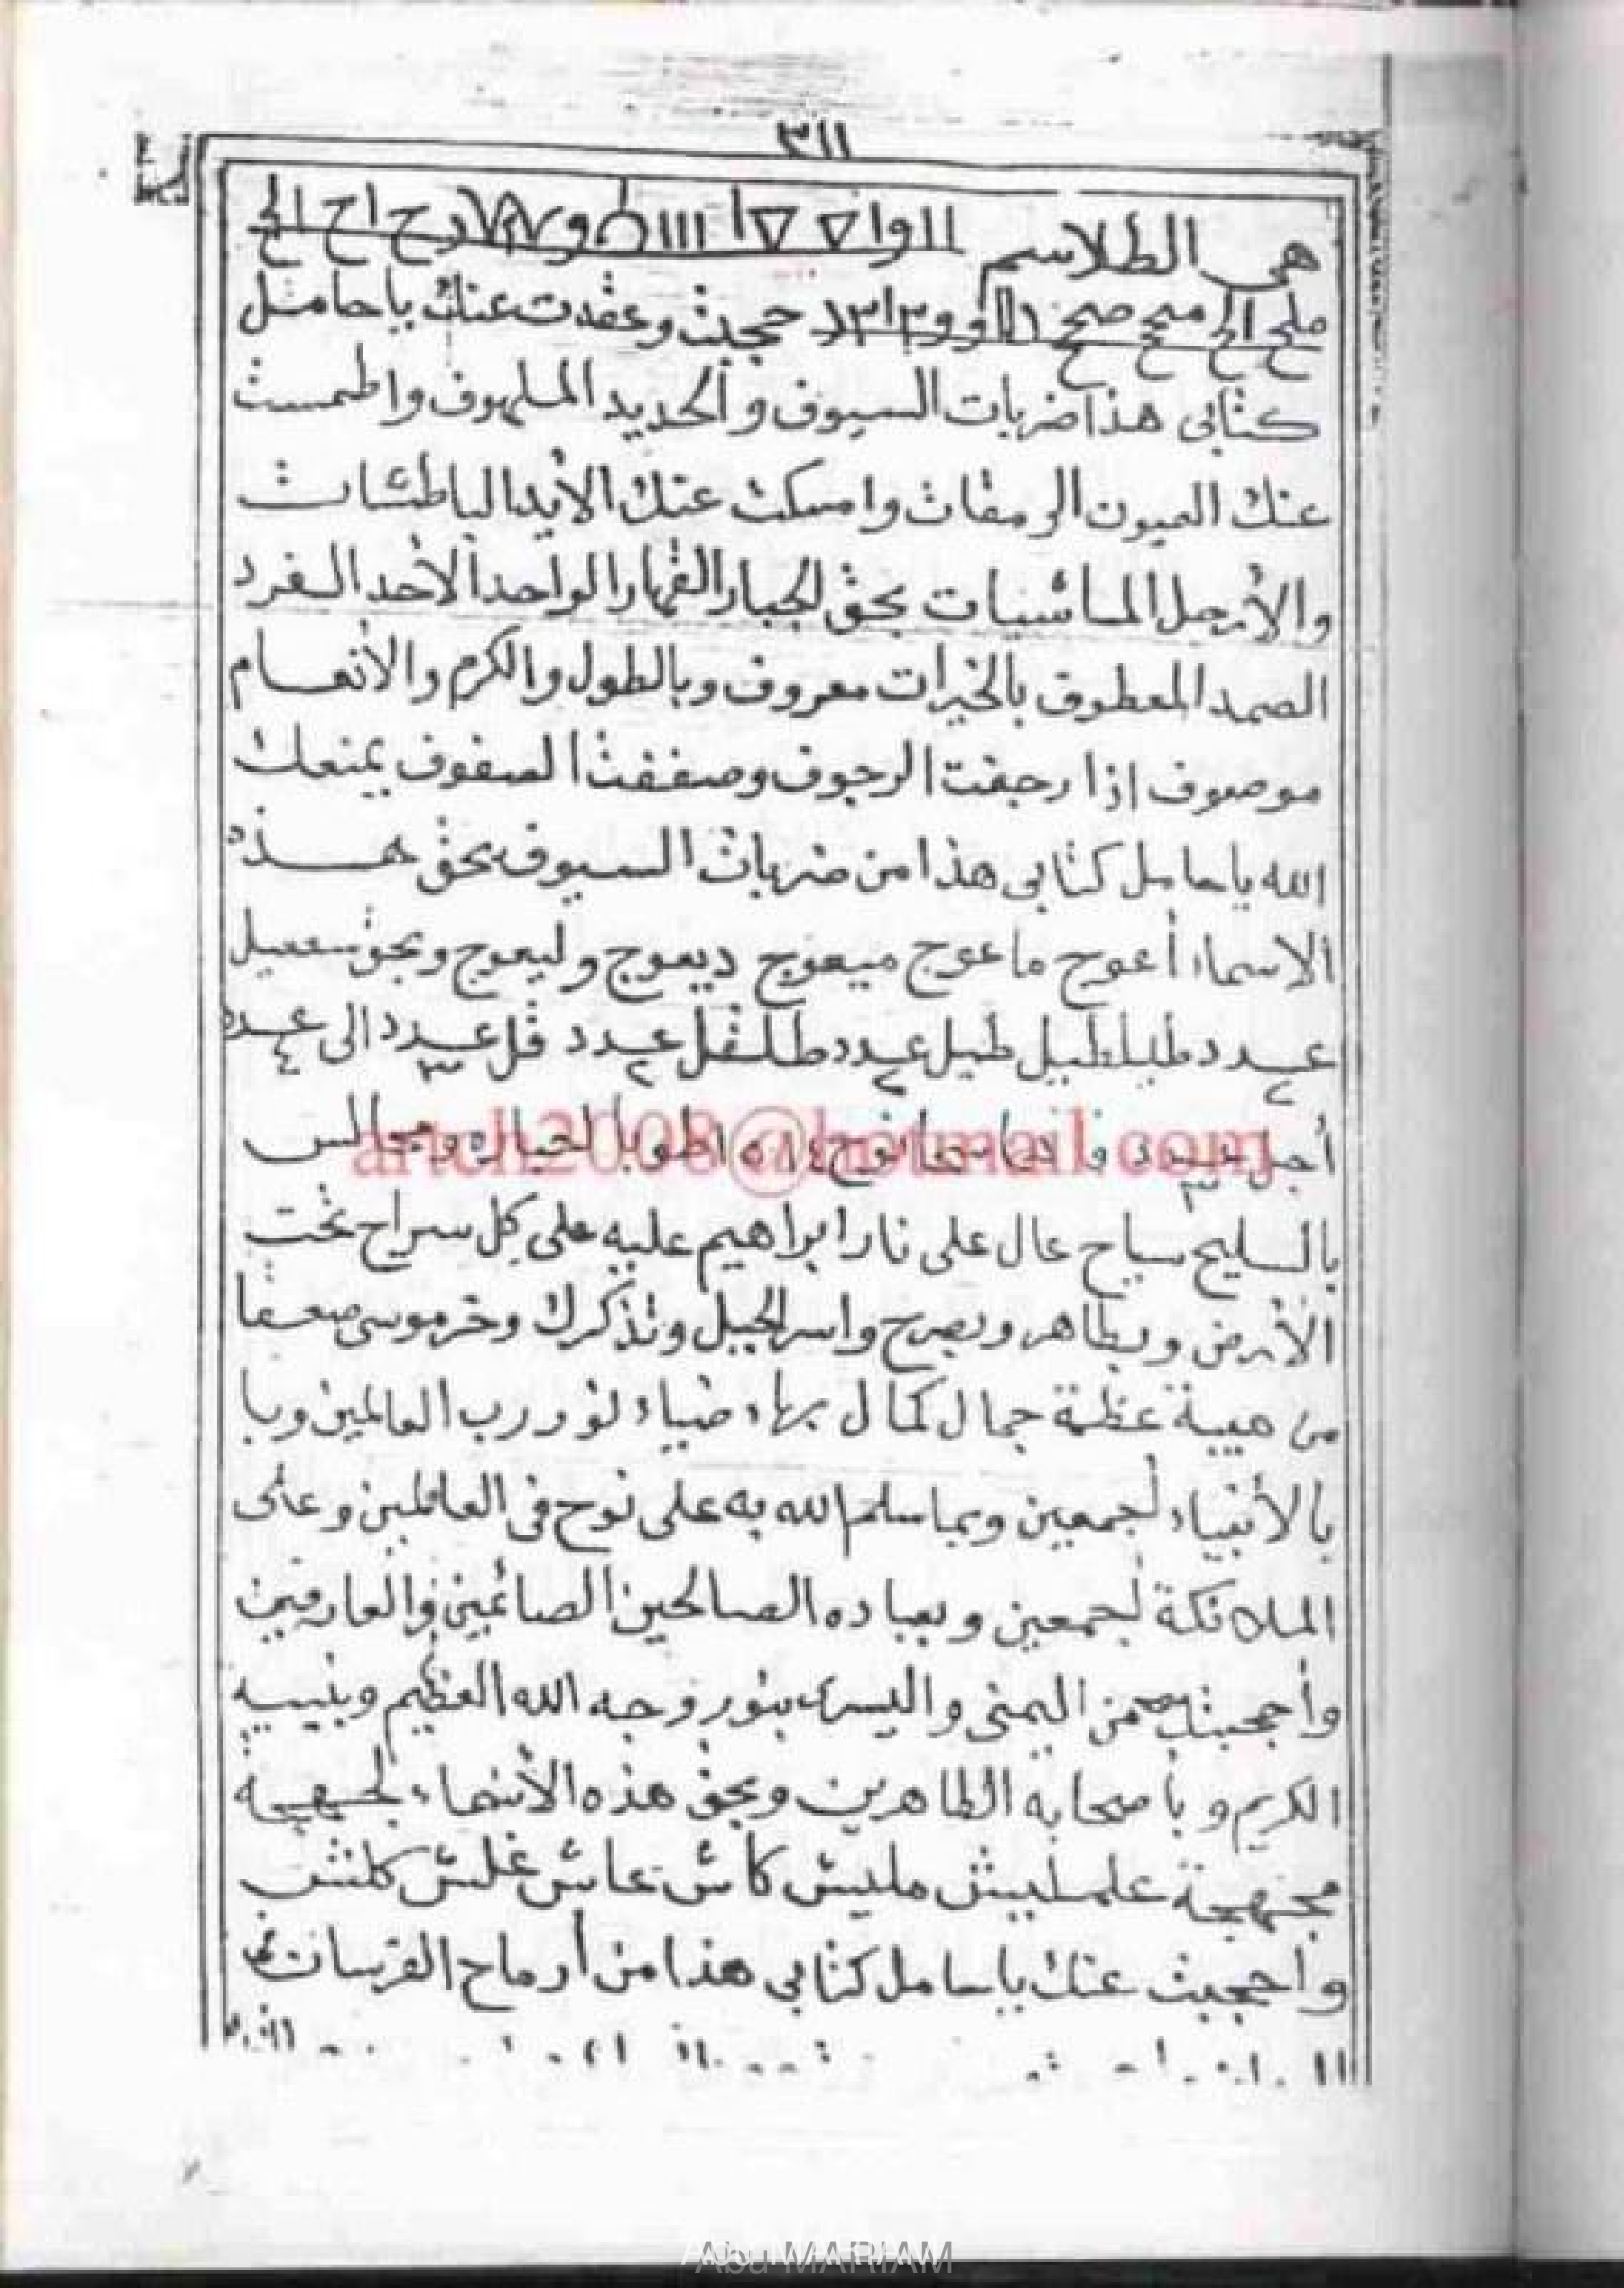 ٣١١
هى الطلاسم
ملح الح مبح صح حجبت وعقدت عنك ياحامل
كتابى هذا ضربات السيوف والحديد الملهوف واطمست
عنك العيون الرمقات وامسكت عنك الأيدا الباطشات
والأرجل الماشيات بحق الجبار القهار الواحد الأحد الفرد
الصمد المعطوق بالخيرات معروف وبالطول والكرم والأنعام
موصوف إذا رجفت الرجوف وصففت الصفوف يمنعك
الله ياحامل كتابى هذا من ضربات السيوف بحق هذه
الاسماء أعوج ماعوج ميعوج ديعوج وليعوج وبحق
عدد طيل عدد عدد فل عدد الى عدد
أجل
بالسليح سياح عال على نار ابراهيم عليه على كل سراح تحت
الأرض وبطاهر وبصرح واسر الجبل وتذكرك وخر موسى صعقا
من هيبة عظمة جمال كمال بهاء ضياء نور رب العالمين وبا
بالأنبياء أجمعين وبما سلم الله به على نوح فى العالمين وعلى
الملائكة أجمعين وبعباده الصالحين الصائمين والعارفين
وأحجبتك من اليمنى واليسرى بنور وجه الله العظيم وبنبيه
الكريم وبأصحابه الطاهرين وبحق هذه الأسماء
علمليش مليش كاش عاش غلش كلشش
واحجبت عنك ياحامل كتابى هذا من أرماح الفرسان
artch2008@hotmail.com
Abu MARIAM